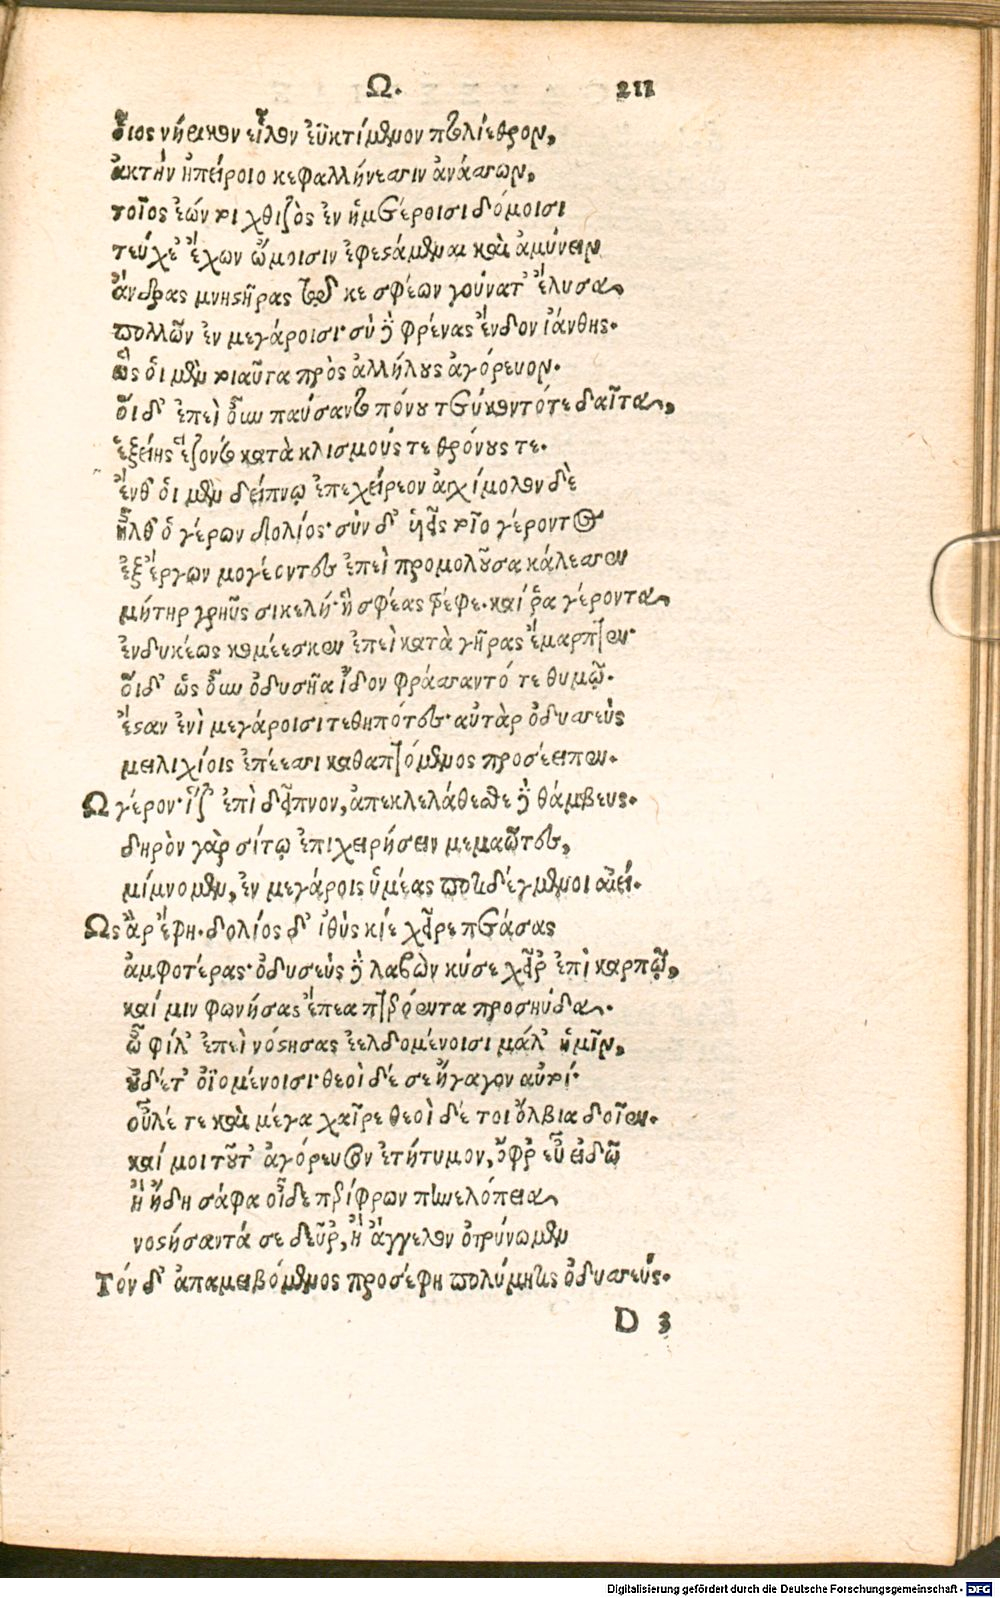 Ω. 211
οἷος νήρικον εἷλον ἐϋκτίμενον πτολίεθρον,
ἀκτὴν ἠπείροιο κεφαλλήνεσσιν ἀνάσσων,
τοῖος ἐών τοι χθιζὸς ἐν ἡμετέροισι δόμοισι
τεύχε' ἔχων ὤμοισιν ἐφεστάμεναι καὶ ἀμύνειν
ἄνδρας μνηστῆρας τῷ κε σφέων γούνατ' ἔλυσα
πολλῶν ἐν μεγάροισι· σὺ δὲ φρένας ἔνδον ἰάνθης.
ὣς ὁι μὲν τοιαῦτα πρὸς ἀλλήλους ἀγόρευον.
ὅι δ' ἐπεὶ οὖν παύσαντο πόνου τετύκοντό τε δαῖτα,
ἑξείης ἕζοντο κατὰ κλισμούς τε θρόνους τε.
ἔνθ' ὁι μὲν δείπνῳ ἐπεχείρεον ἀχίμολον δὲ
ἦλθ' ὁ γέρων Δολίος· σὺν δ' ἡεῖς τοῖο γέροντος
ἐξ ἔργων μογέοντες ἐπεὶ προμολοῦσα κάλεσσεν
μήτηρ γρηῦς σικελή· ἥ σφέας τρέφε. καί ῥα γέροντα
ἐνδυκέως κομέεσκεν ἐπεὶ κατὰ γῆρας ἔμαρπτεν·
ὅι δ' ὡς οὖν ὀδυσῆα ἴδον φράσσαντό τε θυμῷ.
ἔσαν ἐνὶ μεγάροισι τεθηπότες· αὐτὰρ ὀδυσσεὺς
μειλιχίοις ἐπέεσσι καθαπτόμενος προσέειπεν.
Ω γέρον· ἵζ' ἐπὶ δεῖπνον, ἀπεκλελάθεσθε δὲ θάμβευς.
δηρὸν γὰρ σίτῳ ἐπιχειρήσειν μεμαῶτες,
μίμνομεν, ἐν μεγάροις ὑμέας ποτιδέγμενοι αἰεί.
Ως ἂρ ἔφη. δολίος δ' ἰθὺς κίε χεῖρε πετάσας
ἀμφοτέρας· ὀδυσεὺς δὲ λαβὼν κύσε χεῖρ' ἐπὶ καρπῷ,
καί μιν φωνήσας ἔπεα πτερόεντα προσηύδα.
ὦ φίλ' ἐπεὶ νόστησας ἐελδομένοισι μάλ' ἡμῖν,
οὐδέτ' ὀϊομένοισι· θεοὶ δέ σε ἤγαγον αὐτοί·
οὖλέ τε καὶ μέγα χαῖρε θεοὶ δέ τοι ὄλβια δοῖεν.
καί μοι τοῦτ' ἀγόρευσον ἐτήτυμον, ὄφρ' εὖ εἰδῶ
ἢ ἤδη σάφα οἶδε περίφρων πηνελόπεια
νοστήσαντά σε δεῦρ', ἢ ἄγγελον ὀτρύνωμεν
Τόν δ' ἀπαμειβόμενος προσέφη πολύμητις ὀδυσσεύς.
D 3
Digitalisierung gefördert durch die Deutsche Forschungsgemeinschaft - DFG